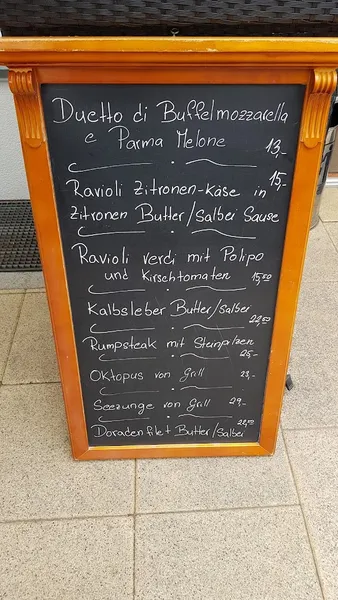 Duetto di Buffelmozzarella
e Parma Melone 13,-
Ravioli Zitronen-käse in 15,-
Zitronen Butter/Salbei Sause
Ravioli verdi mit Polipo
und Kirschtomaten 15,50
Kalbsleber Butter/Salbei
22,50
Rumpsteak mit Steinpilzen
25,-
Oktopus von Grill 23,-
Seezunge von Grill 29,-
Doradenfilet Butter/Salbei 22,50